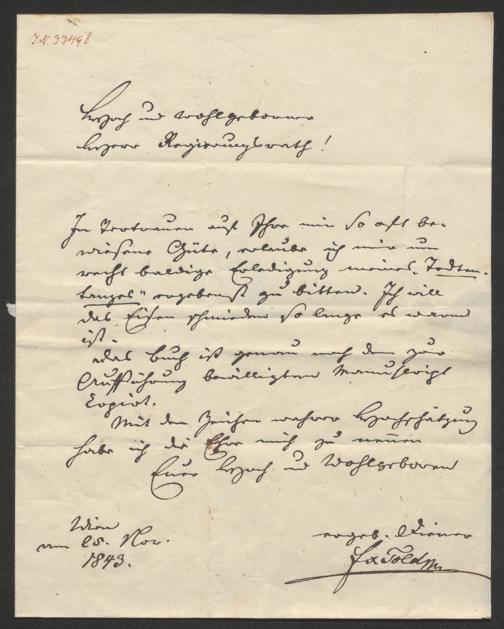 I.N. 33498
Hoch und Wohlgeborner
Herr Regierungsrath!
In Vertrauen auf Ihre mir so oft be-
wiesene Güte, erlaube ich mir um
recht baldige Erledigung meines „Todten-
tanzes“ ergebenst zu bitten. Ich will
das Eisen schmieden so lange es warm
ist.
Das Buch ist genau nach dem zur
Aufführung bewilligten Manuscript
Copirt.
Mit den Zeichen wahrer Hochschätzung
habe ich die Ehre mich zu nennen
Euer Hoch und Wohlgeboren
ergeb. Diener
Fx Told
Wien
am Nov.
1843.